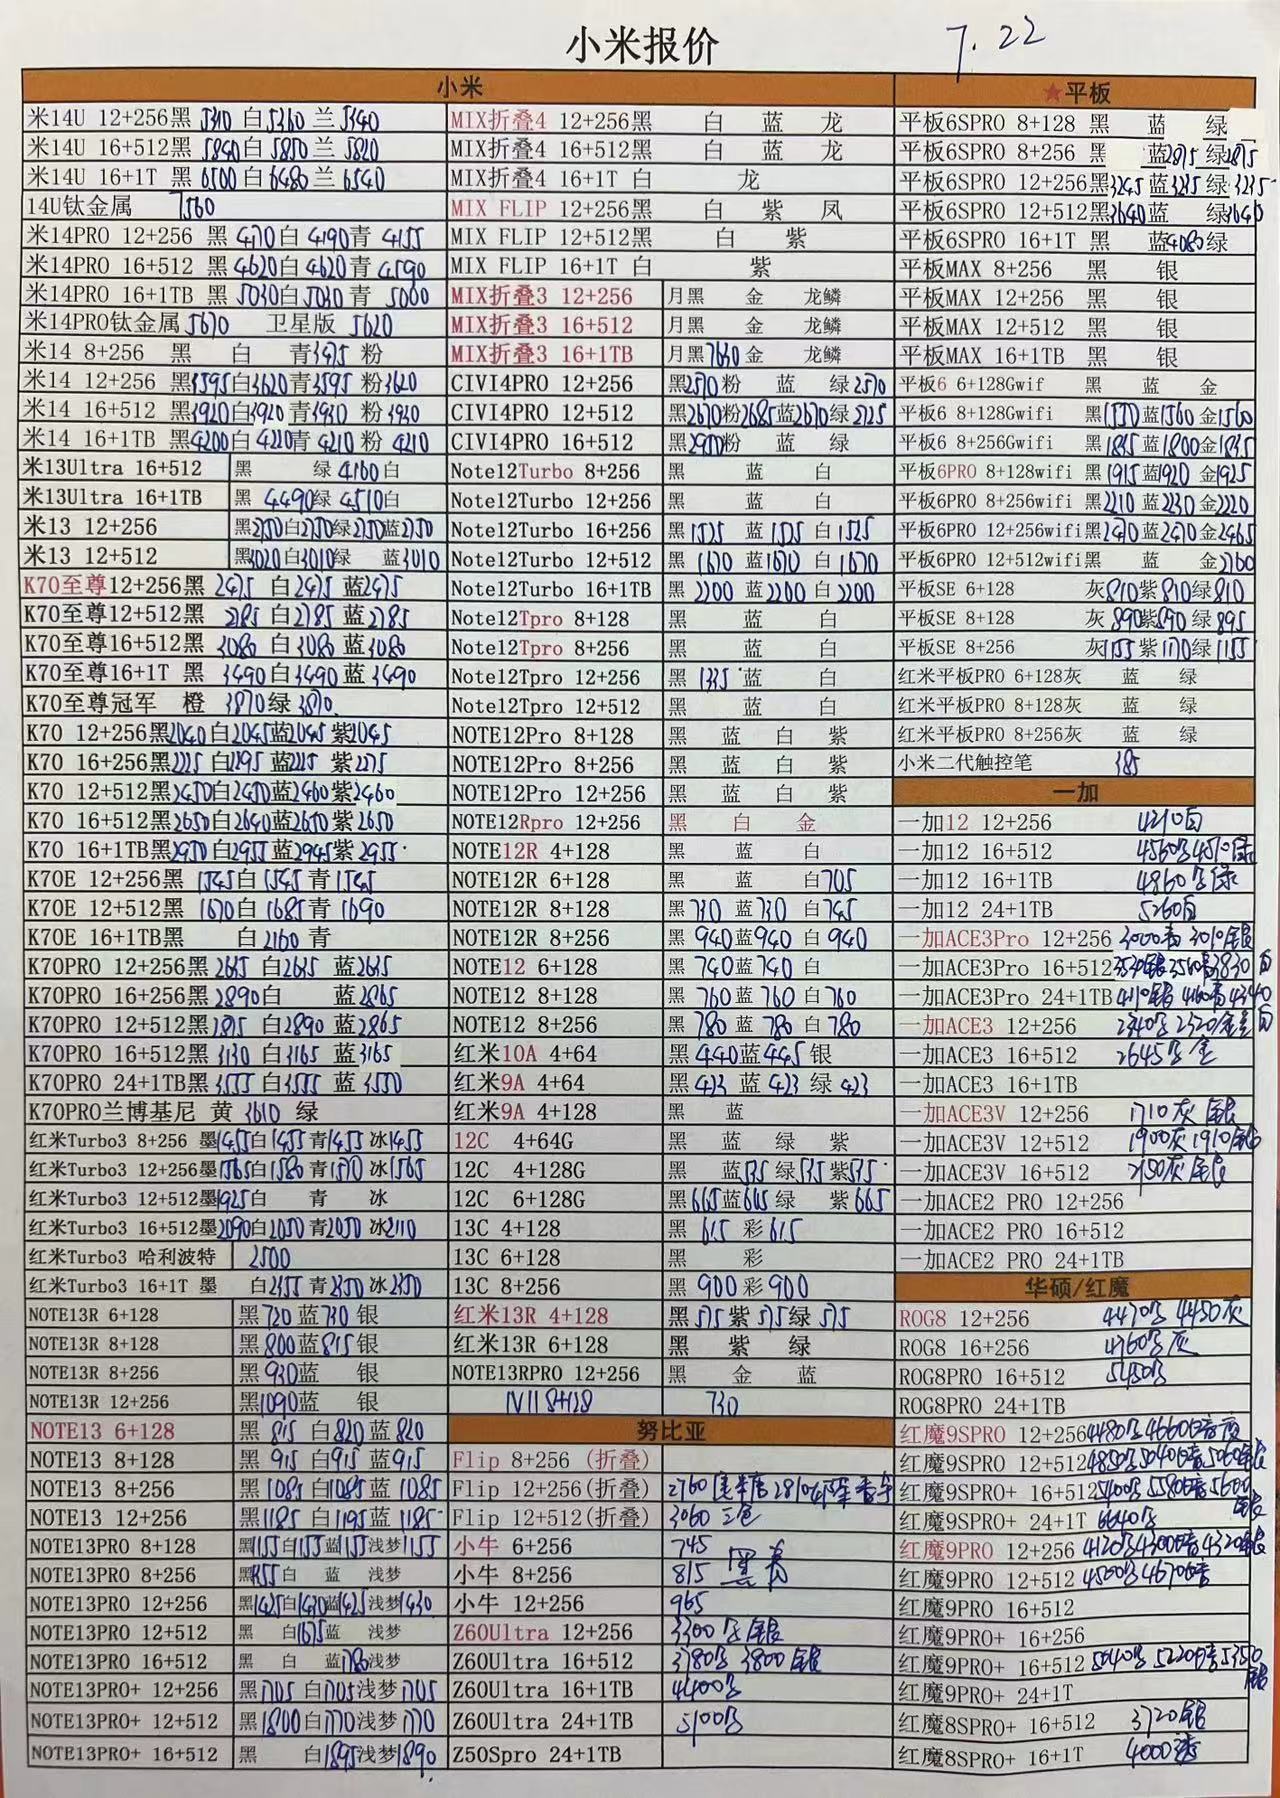 小米报价
7.22
小米
米14U 12+256黑 5310 白5360 兰 5340
米14U 16+512黑 5840白5850兰 5820
米14U 16+1T 黑 6500白6480兰 6540
14U钛金属 7560
米14PRO 12+256 黑 4170白 4190青 4155
米14PRO 16+512 黑 4620白4620青 4590
米14PRO 16+1TB 黑 5030白5030 青 5000
米14PRO钛金属5670 卫星版 5620
米14 8+256 黑 白 青3475 粉
米14 12+256 黑3595白3620青3595 粉3620
米14 16+512 黑3920白3920 青3930 粉3930
米14 16+1TB 黑4200白4220青4210 粉 4210
米13Ultra 16+512 黑 绿 4160白
米13Ultra 16+1TB 黑 4490绿 4510白
米13 12+256
米13 12+512 黑3020白3010绿 蓝3010
K70至尊12+256黑 2475 白2475 蓝2475
K70至尊12+512黑 2785 白2785 蓝2785
K70至尊16+512黑 3080 白3080 蓝3080
K70至尊16+1T 黑 3490白3490 蓝3490
K70至尊冠军 橙 3870绿 3870
K70 12+256黑2040白2045蓝2045 紫2045
K70 16+256黑 白 蓝 紫
K70 12+512黑2450白2450蓝2460紫2460
K70 16+512黑2650白2640蓝2650紫2650
K70 16+1TB黑2950白2955蓝2945紫2955
K70E 12+256黑 1545白 1545 青 1545
K70E 12+512黑 1670白1685青 1690
K70E 16+1TB黑 白2160 青
K70PRO 12+256黑2635 白2635 蓝2635
K70PRO 16+256黑2890白 蓝2865
K70PRO 12+512黑2875 白2890 蓝2865
K70PRO 16+512黑3130 白3165 蓝3165
K70PRO 24+1TB黑3555 白3555 蓝3550
K70PRO兰博基尼 黄 3610 绿
红米Turbo3 8+256 墨1455白1455青1455冰1455
红米Turbo3 12+256墨1565白1580青1570冰1565
红米Turbo3 12+512墨1925白 青 冰
红米Turbo3 16+512墨2090白2050青2050冰2110
红米Turbo3 哈利波特 2500
红米Turbo3 16+1T 墨 白2355青2350冰2350
NOTE13R 6+128 黑720蓝730银
NOTE13R 8+128 黑800蓝815银
NOTE13R 8+256 黑930蓝 银
NOTE13R 12+256 黑1090蓝 银
NOTE13 6+128 黑 815 白820蓝820
NOTE13 8+128 黑 915 白915 蓝915
NOTE13 8+256 黑1085白1085蓝1085
NOTE13 12+256 黑1185白1195蓝1185
NOTE13PRO 8+128 黑1155白1155蓝1155浅梦1155
NOTE13PRO 8+256 黑1355白 蓝 浅梦
NOTE13PRO 12+256 黑1425白1430蓝1425浅梦1430
NOTE13PRO 12+512 黑 白1675蓝 浅梦
NOTE13PRO 16+512 黑 白 蓝1780浅梦
NOTE13PRO+ 12+256 黑1705白1705浅梦1705
NOTE13PRO+ 12+512 黑1800白1770浅梦1770
NOTE13PRO+ 16+512 黑 白1895浅梦1890
MIX折叠4 12+256黑 白 蓝 龙
MIX折叠4 16+512黑 白 蓝 龙
MIX折叠4 16+1T 白 龙
MIX FLIP 12+256黑 白 紫 凤
MIX FLIP 12+512黑 白 紫
MIX FLIP 16+1T 白 紫
MIX折叠3 12+256 月黑 金 龙鳞
MIX折叠3 16+512 月黑 金 龙鳞
MIX折叠3 16+1TB 月黑7630金 龙鳞
CIVI4PRO 12+256 黑2570粉 蓝 绿2570
CIVI4PRO 12+512 黑2670粉2685蓝2670绿2725
CIVI4PRO 16+512 黑2950粉 蓝 绿
Note12Turbo 8+256 黑 蓝 白
Note12Turbo 12+256 黑 蓝 白
Note12Turbo 16+256 黑1525 蓝1525 白1525
Note12Turbo 12+512 黑 1670蓝1670 白1670
Note12Turbo 16+1TB 黑 2200 蓝2200 白2200
Note12Tpro 8+128 黑 蓝 白
Note12Tpro 8+256 黑 蓝 白
Note12Tpro 12+256 黑 1335 蓝 白
Note12Tpro 12+512 黑 蓝 白
NOTE12Pro 8+128 黑 蓝 白 紫
NOTE12Pro 8+256 黑 蓝 白 紫
NOTE12Pro 12+256 黑 蓝 白 紫
NOTE12Rpro 12+256 黑 白 金
NOTE12R 4+128 黑 蓝 白
NOTE12R 6+128 黑 蓝 白705
NOTE12R 8+128 黑730 蓝730 白745
NOTE12R 8+256 黑 940蓝940 白 940
NOTE12 6+128 黑 740蓝740 白
NOTE12 8+128 黑 760蓝 760 白760
NOTE12 8+256 黑 780 蓝 780 白780
红米10A 4+64 黑 440蓝445银
红米9A 4+64 黑 423 蓝 423 绿 423
红米9A 4+128 黑 蓝
12C 4+64G 黑 蓝 绿 紫
12C 4+128G 黑 蓝535绿535紫535
12C 6+128G 黑665蓝665绿 紫665
13C 4+128 黑 615 彩615
13C 6+128 黑 彩
13C 8+256 黑 900彩900
红米13R 4+128 黑575紫575绿 575
红米13R 6+128 黑 紫 绿
NOTE13RPRO 12+256 黑 金 蓝
N11 8+128 730
努比亚
Flip 8+256 (折叠)
Flip 12+256(折叠) 2760 2810
Flip 12+512(折叠) 3060 三色
小牛 6+256 745
小牛 8+256 815 黑青
小牛 12+256 965
Z60Ultra 12+256 3300 银
Z60Ultra 16+512 3780 3800 银
Z60Ultra 16+1TB 4400
Z60Ultra 24+1TB 5100
Z50Spro 24+1TB
★平板
平板6SPRO 8+128 黑 蓝 绿
平板6SPRO 8+256 黑 蓝2875绿2875
平板6SPRO 12+256黑3245蓝3235绿3235
平板6SPRO 12+512黑3640蓝 绿3640
平板6SPRO 16+1T 黑 蓝4080绿
平板MAX 8+256 黑 银
平板MAX 12+256 黑 银
平板MAX 12+512 黑 银
平板MAX 16+1TB 黑 银
平板6 6+128Gwif 黑 蓝 金
平板6 8+128Gwifi 黑1550蓝1560金1560
平板6 8+256Gwifi 黑1835蓝1800金1835
平板6PRO 8+128wifi 黑1915蓝1920 金1925
平板6PRO 8+256wifi 黑2210蓝2230金2220
平板6PRO 12+256wifi黑2470蓝2470金2465
平板6PRO 12+512wifi黑 蓝 金2760
平板SE 6+128 灰810紫810绿810
平板SE 8+128 灰 890紫890绿895
平板SE 8+256 灰1155紫1170绿1155
红米平板PRO 6+128灰 蓝 绿
红米平板PRO 8+128灰 蓝 绿
红米平板PRO 8+256灰 蓝 绿
小米二代触控笔 385
一加
一加12 12+256 4210白
一加12 16+512 4560 4510绿
一加12 16+1TB 4860 绿
一加12 24+1TB 5260白
一加ACE3Pro 12+256 3000青 3010银
一加ACE3Pro 16+512 3530银3560青3830白
一加ACE3Pro 24+1TB 4110银 4160青4340白
一加ACE3 12+256 2340 2320金
一加ACE3 16+512 2645 金
一加ACE3 16+1TB
一加ACE3V 12+256 1710灰 银
一加ACE3V 12+512 1900灰 1910银
一加ACE3V 16+512 2150灰 银
一加ACE2 PRO 12+256
一加ACE2 PRO 16+512
一加ACE2 PRO 24+1TB
华硕/红魔
ROG8 12+256 4470 4450灰
ROG8 16+256 4760 灰
ROG8PRO 16+512 5450
ROG8PRO 24+1TB
红魔9SPRO 12+256 4480 4660暗夜
红魔9SPRO 12+512 4850 5040暗 5060银
红魔9SPRO+ 16+512 5400 5580暗 5600银
红魔9SPRO+ 24+1T 6640
红魔9PRO 12+256 4120 4300暗 4320银
红魔9PRO 12+512 4500 4670暗
红魔9PRO 16+512
红魔9PRO+ 16+256
红魔9PRO+ 16+512 5040 5220暗5350银
红魔9PRO+ 24+1T
红魔8SPRO+ 16+512 3720银
红魔8SPRO+ 16+1T 4000透